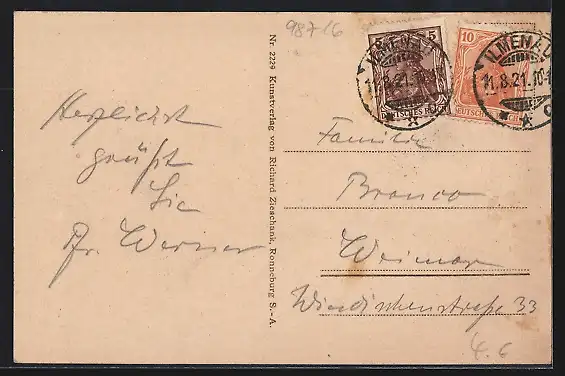 Herzlichst
grüßt
Sie
Fr. Werner
Nr. 2229 Kunstverlag von Richard Zieschank, Ronneburg S.-A.
98776
5 5
DEUTSCHES REICH
10
DEUTSCHES REICH
ILMENAU
11.8.21.10-1
ILMENAU
11.8.21.10-1
Familie
Bronco
Weimar
Windischenstraße 33
4.6